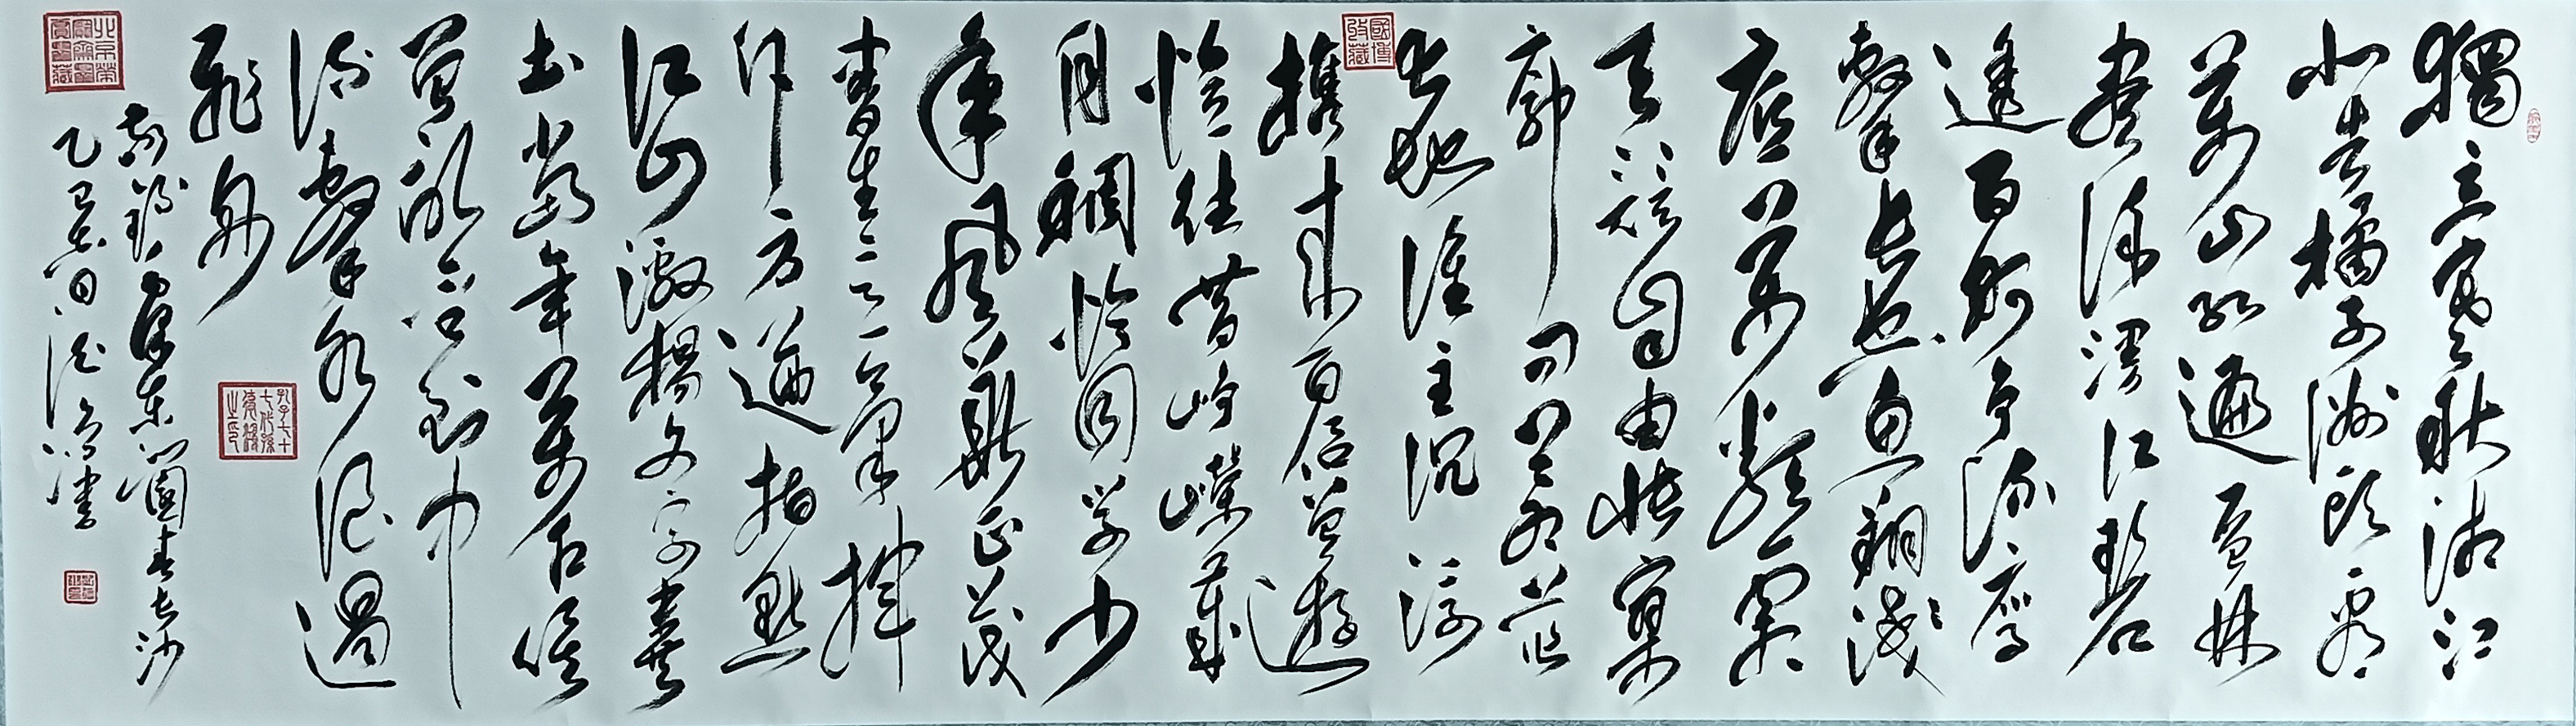 獨立寒秋湘江
北去橘子洲頭看
萬山紅遍層林
盡染漫江碧
透百舸争流鷹
擊長空魚翔淺
底萬類霜
天競自由悵寥
廓問蒼茫
大地誰主沉浮
携來百侣曾遊
憶往昔崢嶸歲
月稠恰同學少
年風華正茂
書生意氣揮
斥方遒指點
江山激揚文字糞
土當年萬户侯
曾記否到中
流擊水浪遏
飛舟
敬錄毛澤東沁園春長沙
乙巳春月德書
國博收藏
孔子七十七代孫